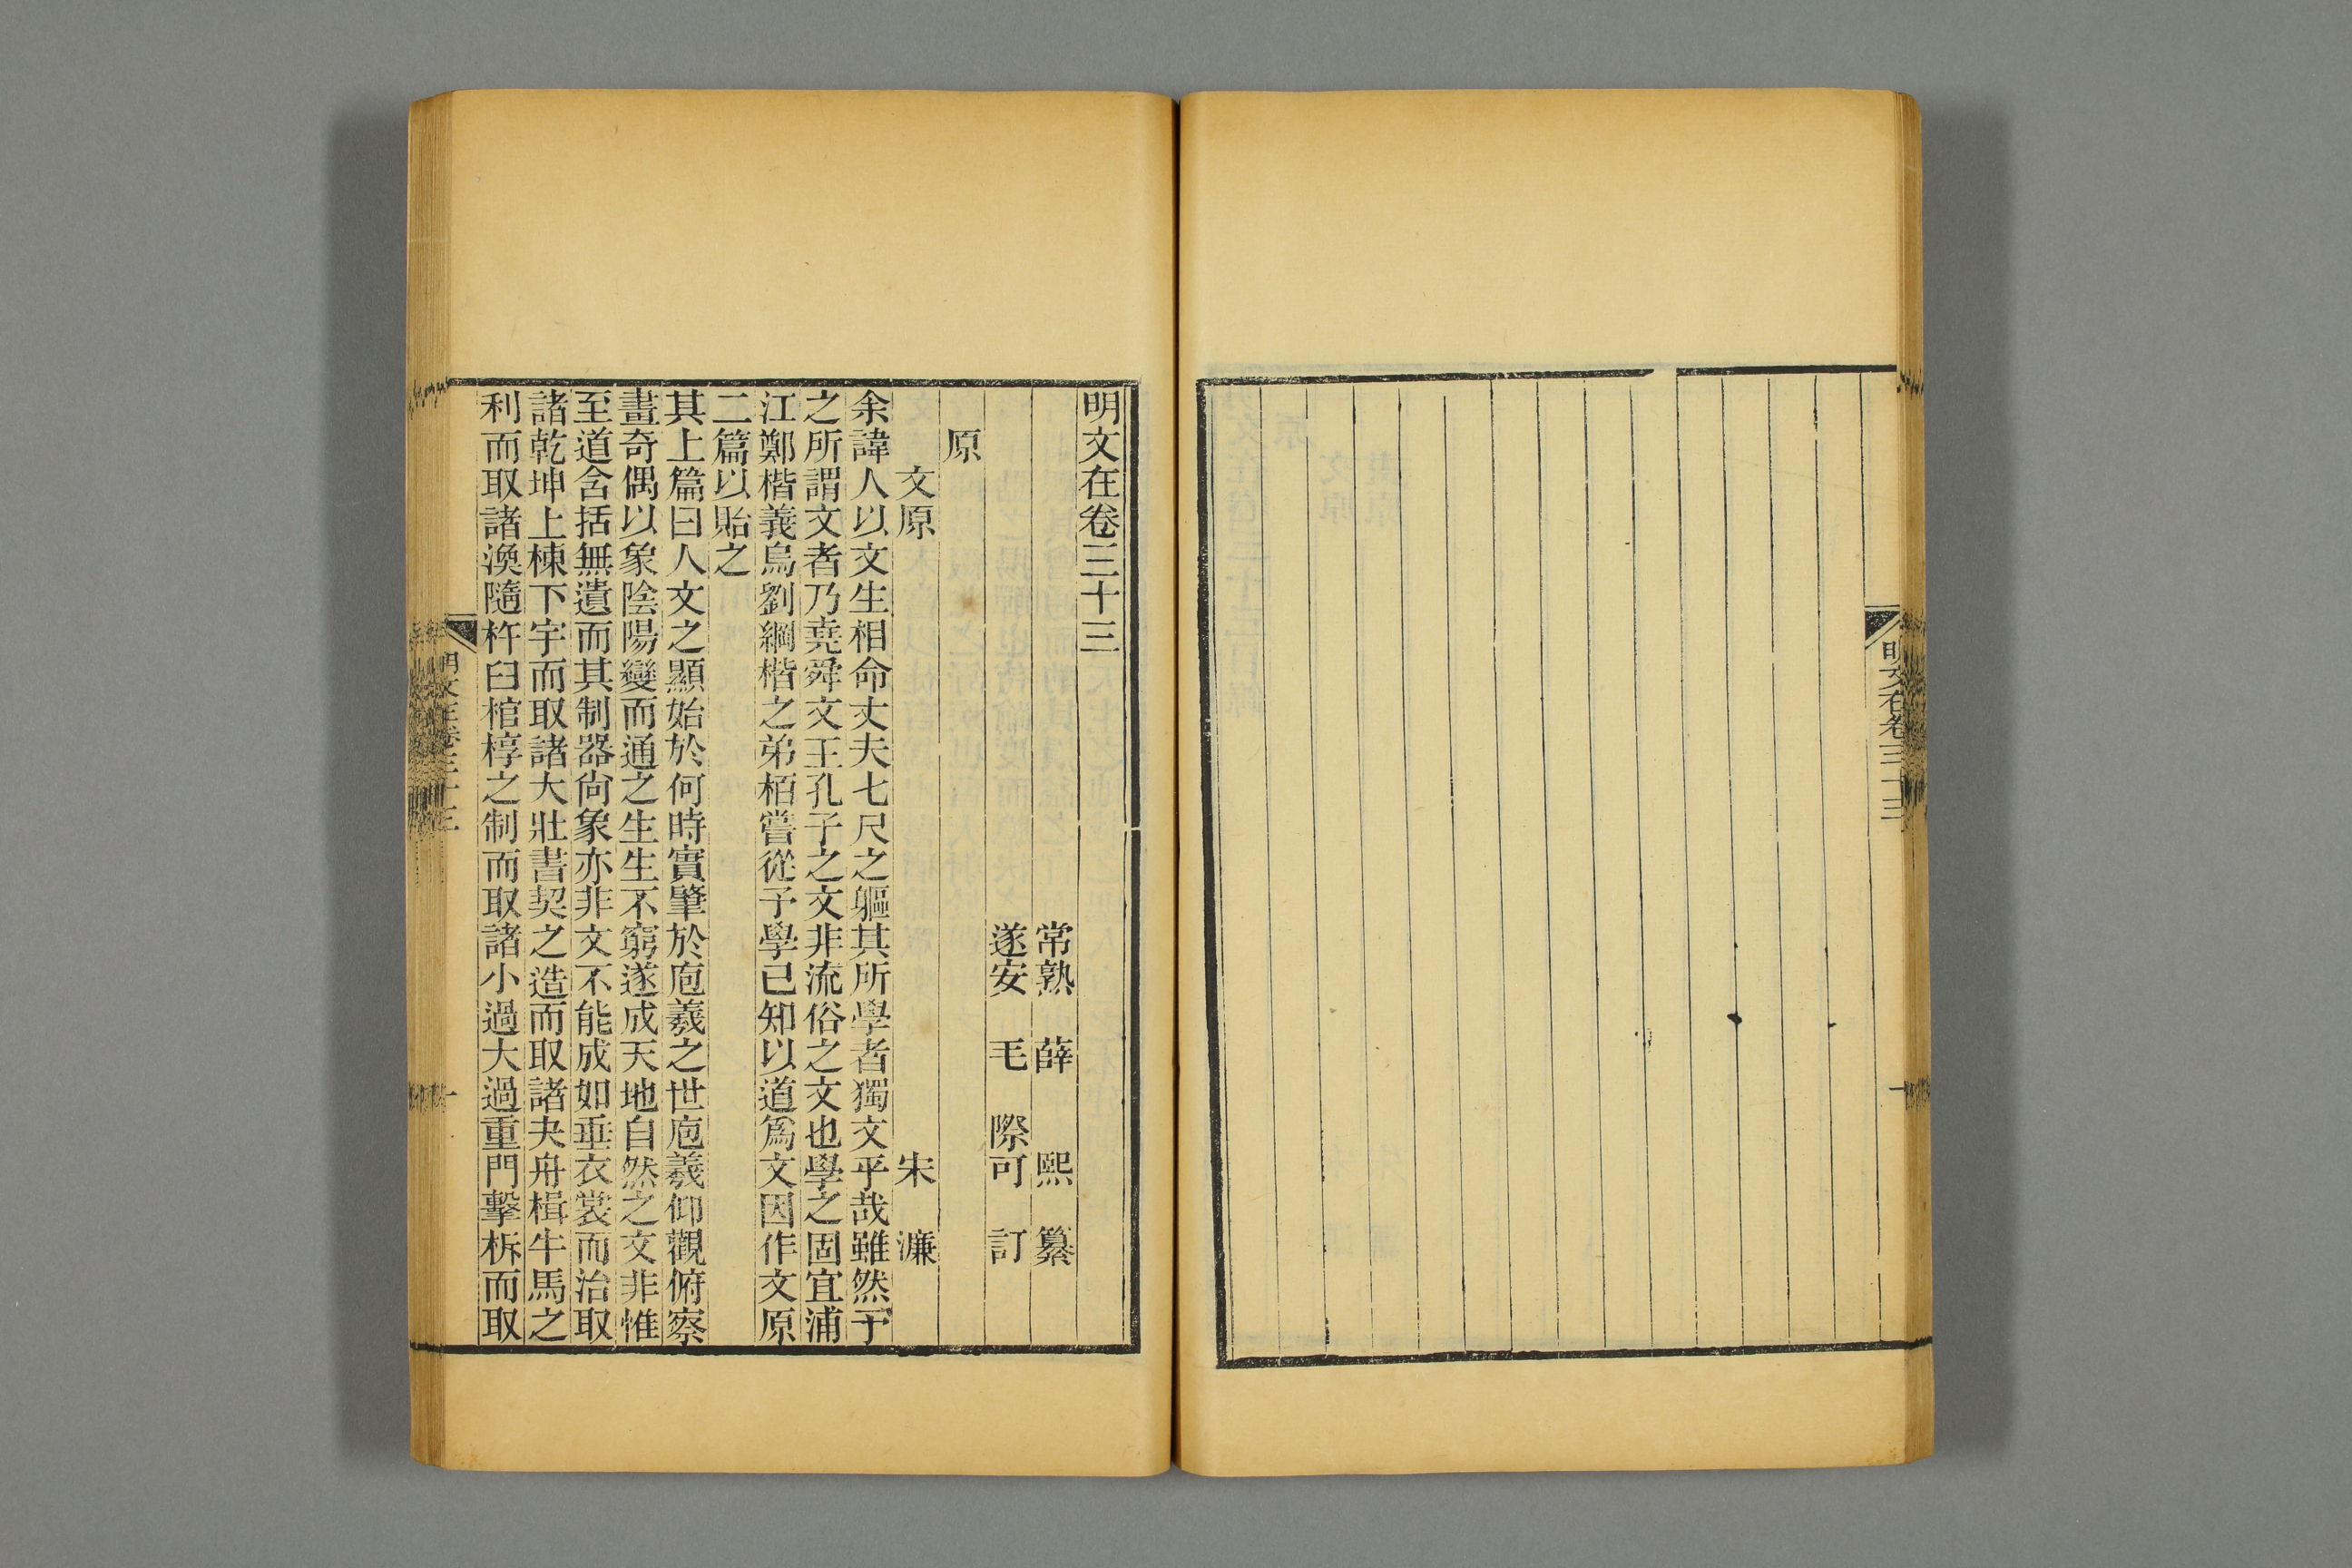 明文在卷三十三
一
明文在卷三十三
常熟　薛　熙　纂
遂安　毛　際可　訂
原
文原　宋　濂
余諱人以文生相命丈夫七尺之軀其所學者獨文乎哉雖然予
之所謂文者乃堯舜文王孔子之文非流俗之文也學之固宜浦
江鄭楷義烏劉綱楷之弟栢嘗從予學已知以道爲文因作文原
二篇以貽之
其上篇曰人文之顯始於何時實肇於庖羲之世庖羲仰觀俯察
畫奇偶以象陰陽變而通之生生不窮遂成天地自然之文非惟
至道含括無遺而其制器尙象亦非文不能成如垂衣裳而治取
諸乾坤上棟下宇而取諸大壯書契之造而取諸夬舟楫牛馬之
利而取諸渙隨杵臼棺椁之制而取諸小過大過重門擊柝而取
明文在卷三十三
一